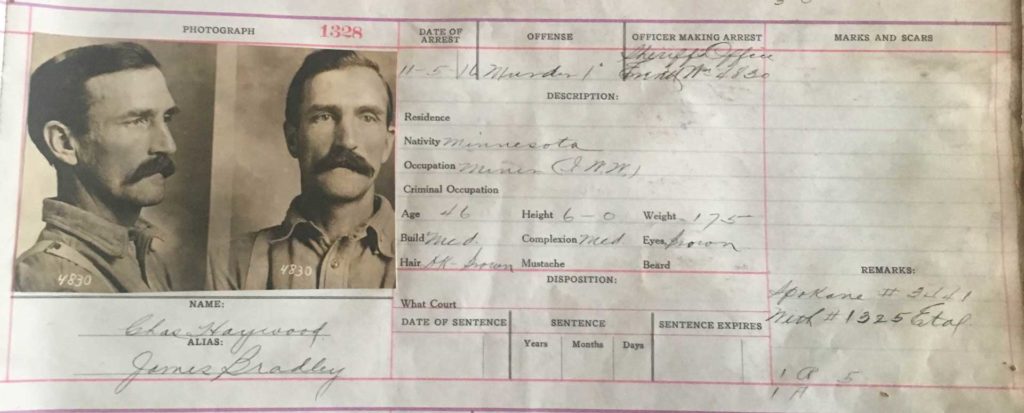 PHOTOGRAPH 1328
DATE OF ARREST OFFENSE OFFICER MAKING ARREST MARKS AND SCARS
11-5-16 Murder 1° Sheriff's Office
4830
DESCRIPTION:
Residence
Nativity Minnesota
Occupation Miner (I.W.W.)
Criminal Occupation
Age 46 Height 6-0 Weight 175
Build Med. Complexion Med Eyes Brown
Hair Dk-Brown Mustache Beard
4830 4830
DISPOSITION:
What Court
DATE OF SENTENCE SENTENCE SENTENCE EXPIRES
Years Months Days
REMARKS:
Spokane # 3441
# 1325 Etal.
NAME:
Chas. Haywood
ALIAS:
James Bradley